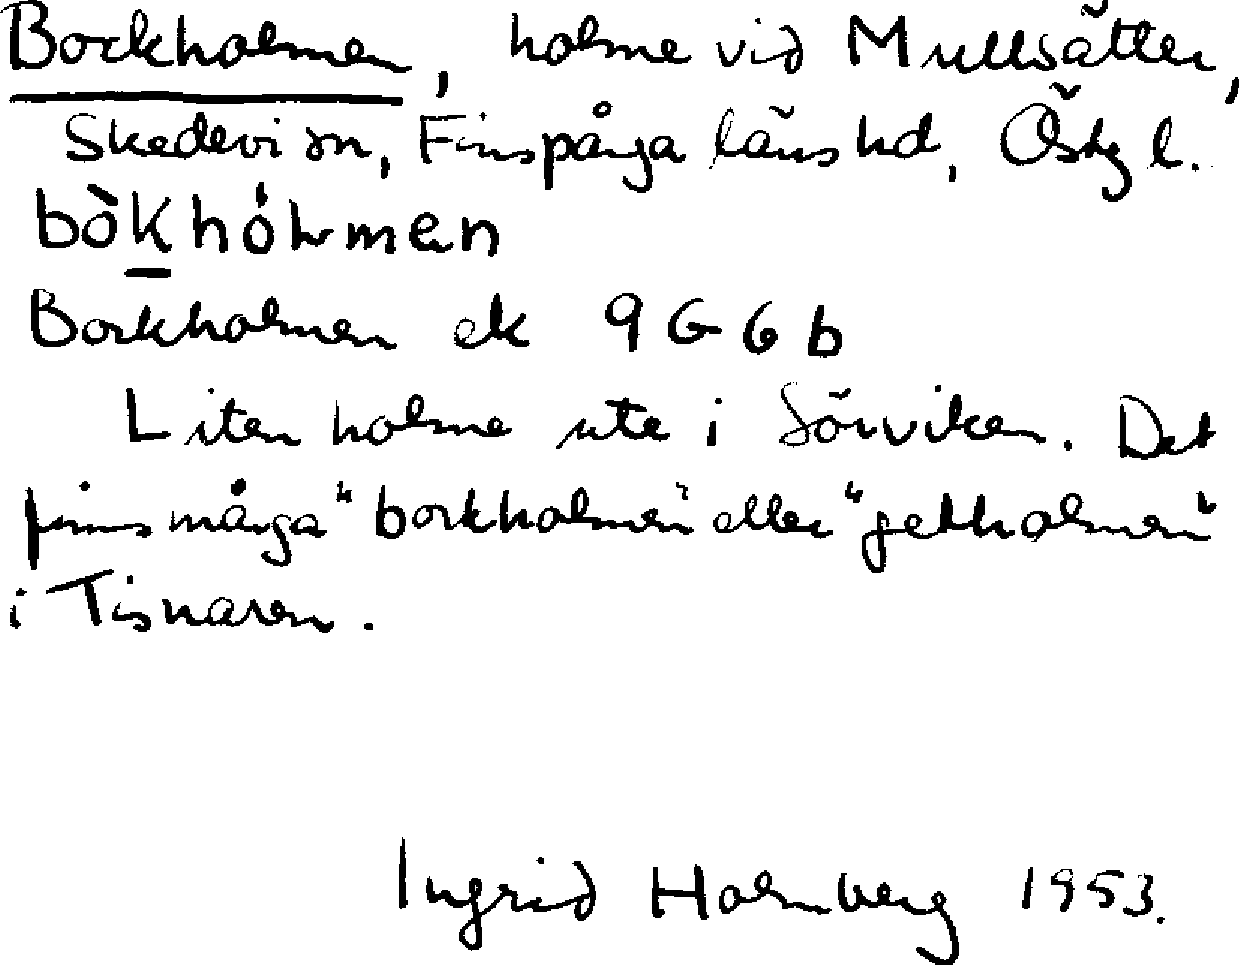 Bockholmen, holme vid Mullsätter,
Skedevi sn, Finspånga läns hd, Östg l.
bòkhólmen
Bockholmen ek 9G6b
Liten holme ute i Sörviken. Det
finns många "bockholmen" eller "getholmen"
i Tisnaren.
Ingrid Holmberg 1953.